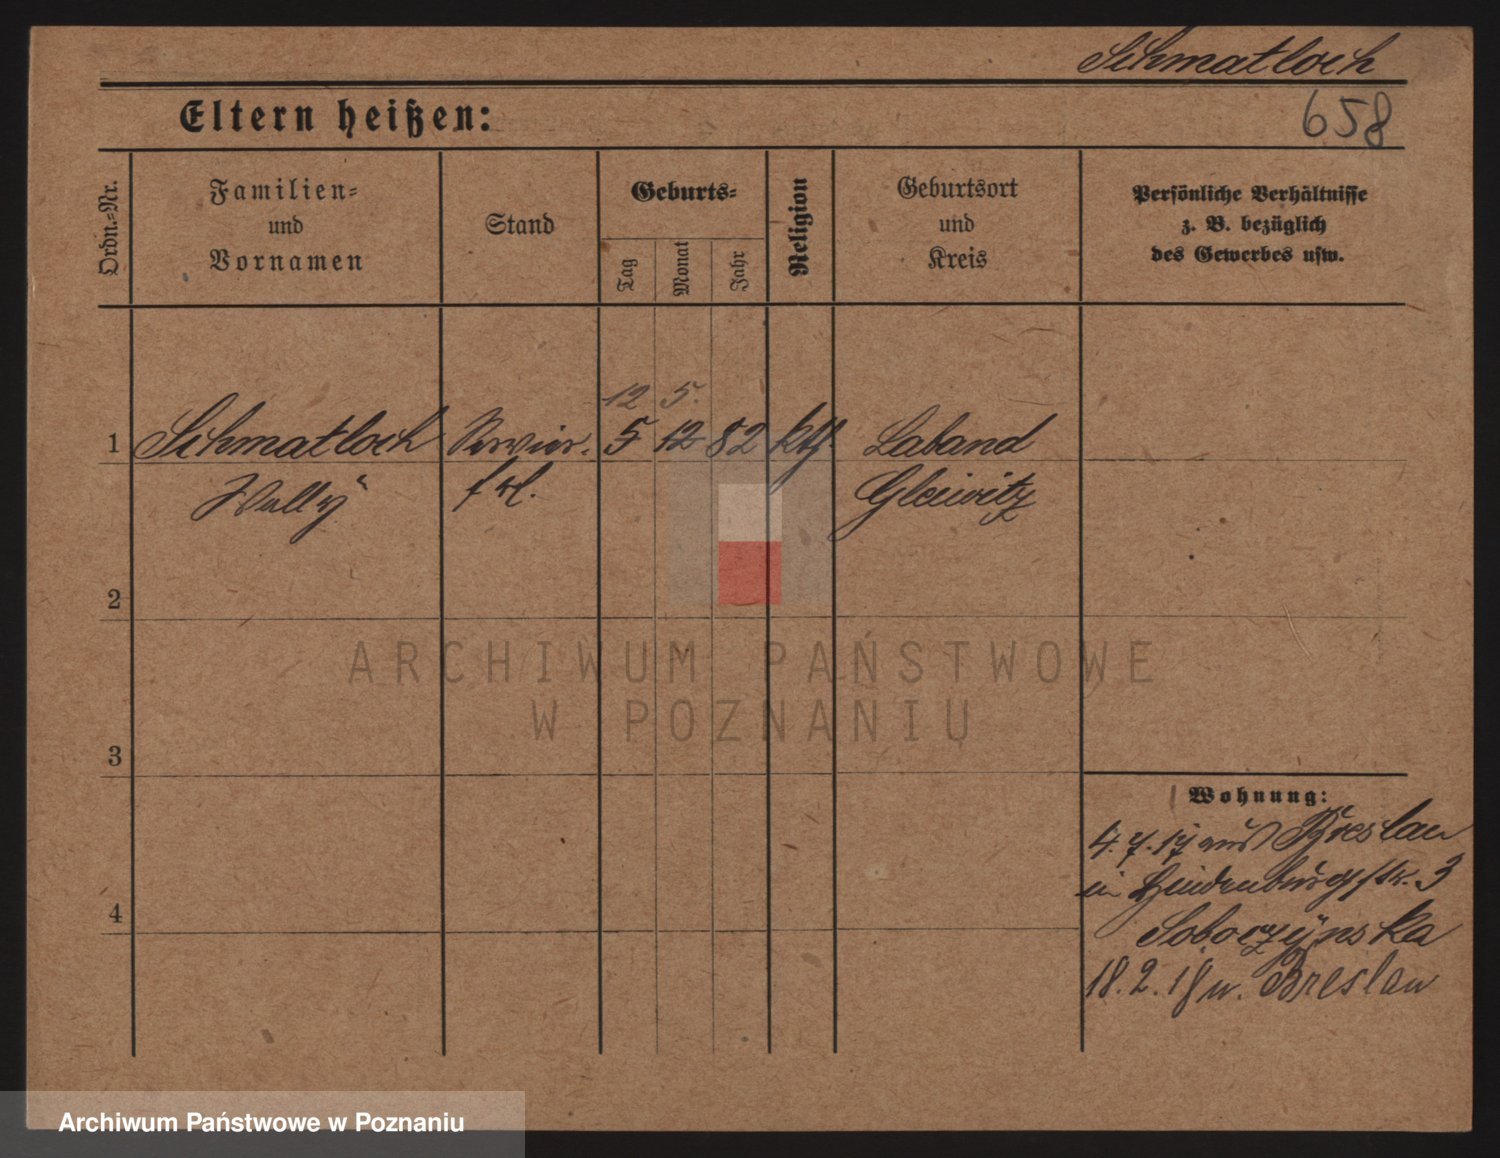 Schmatloch
Eltern heißen:
658
Ordn.-Nr.
Familien-
und
Vornamen
Stand
Geburts-
Tag
Monat
Jahr
Religion
Geburtsort
und
Kreis
Persönliche Verhältnisse
z. B. bezüglich
des Gewerbes usw.
12 5.
1 Schmatloch Servier. 5 12 82 kth. Laband
Wally frl. Gleiwitz
2
3
4
Wohnung:
4.7.17 aus Breslau
in Hindenburgstr. 3
Soboczynska
18.2.18 n. Breslau
ARCHIWUM PAŃSTWOWE
W POZNANIU
Archiwum Państwowe w Poznaniu